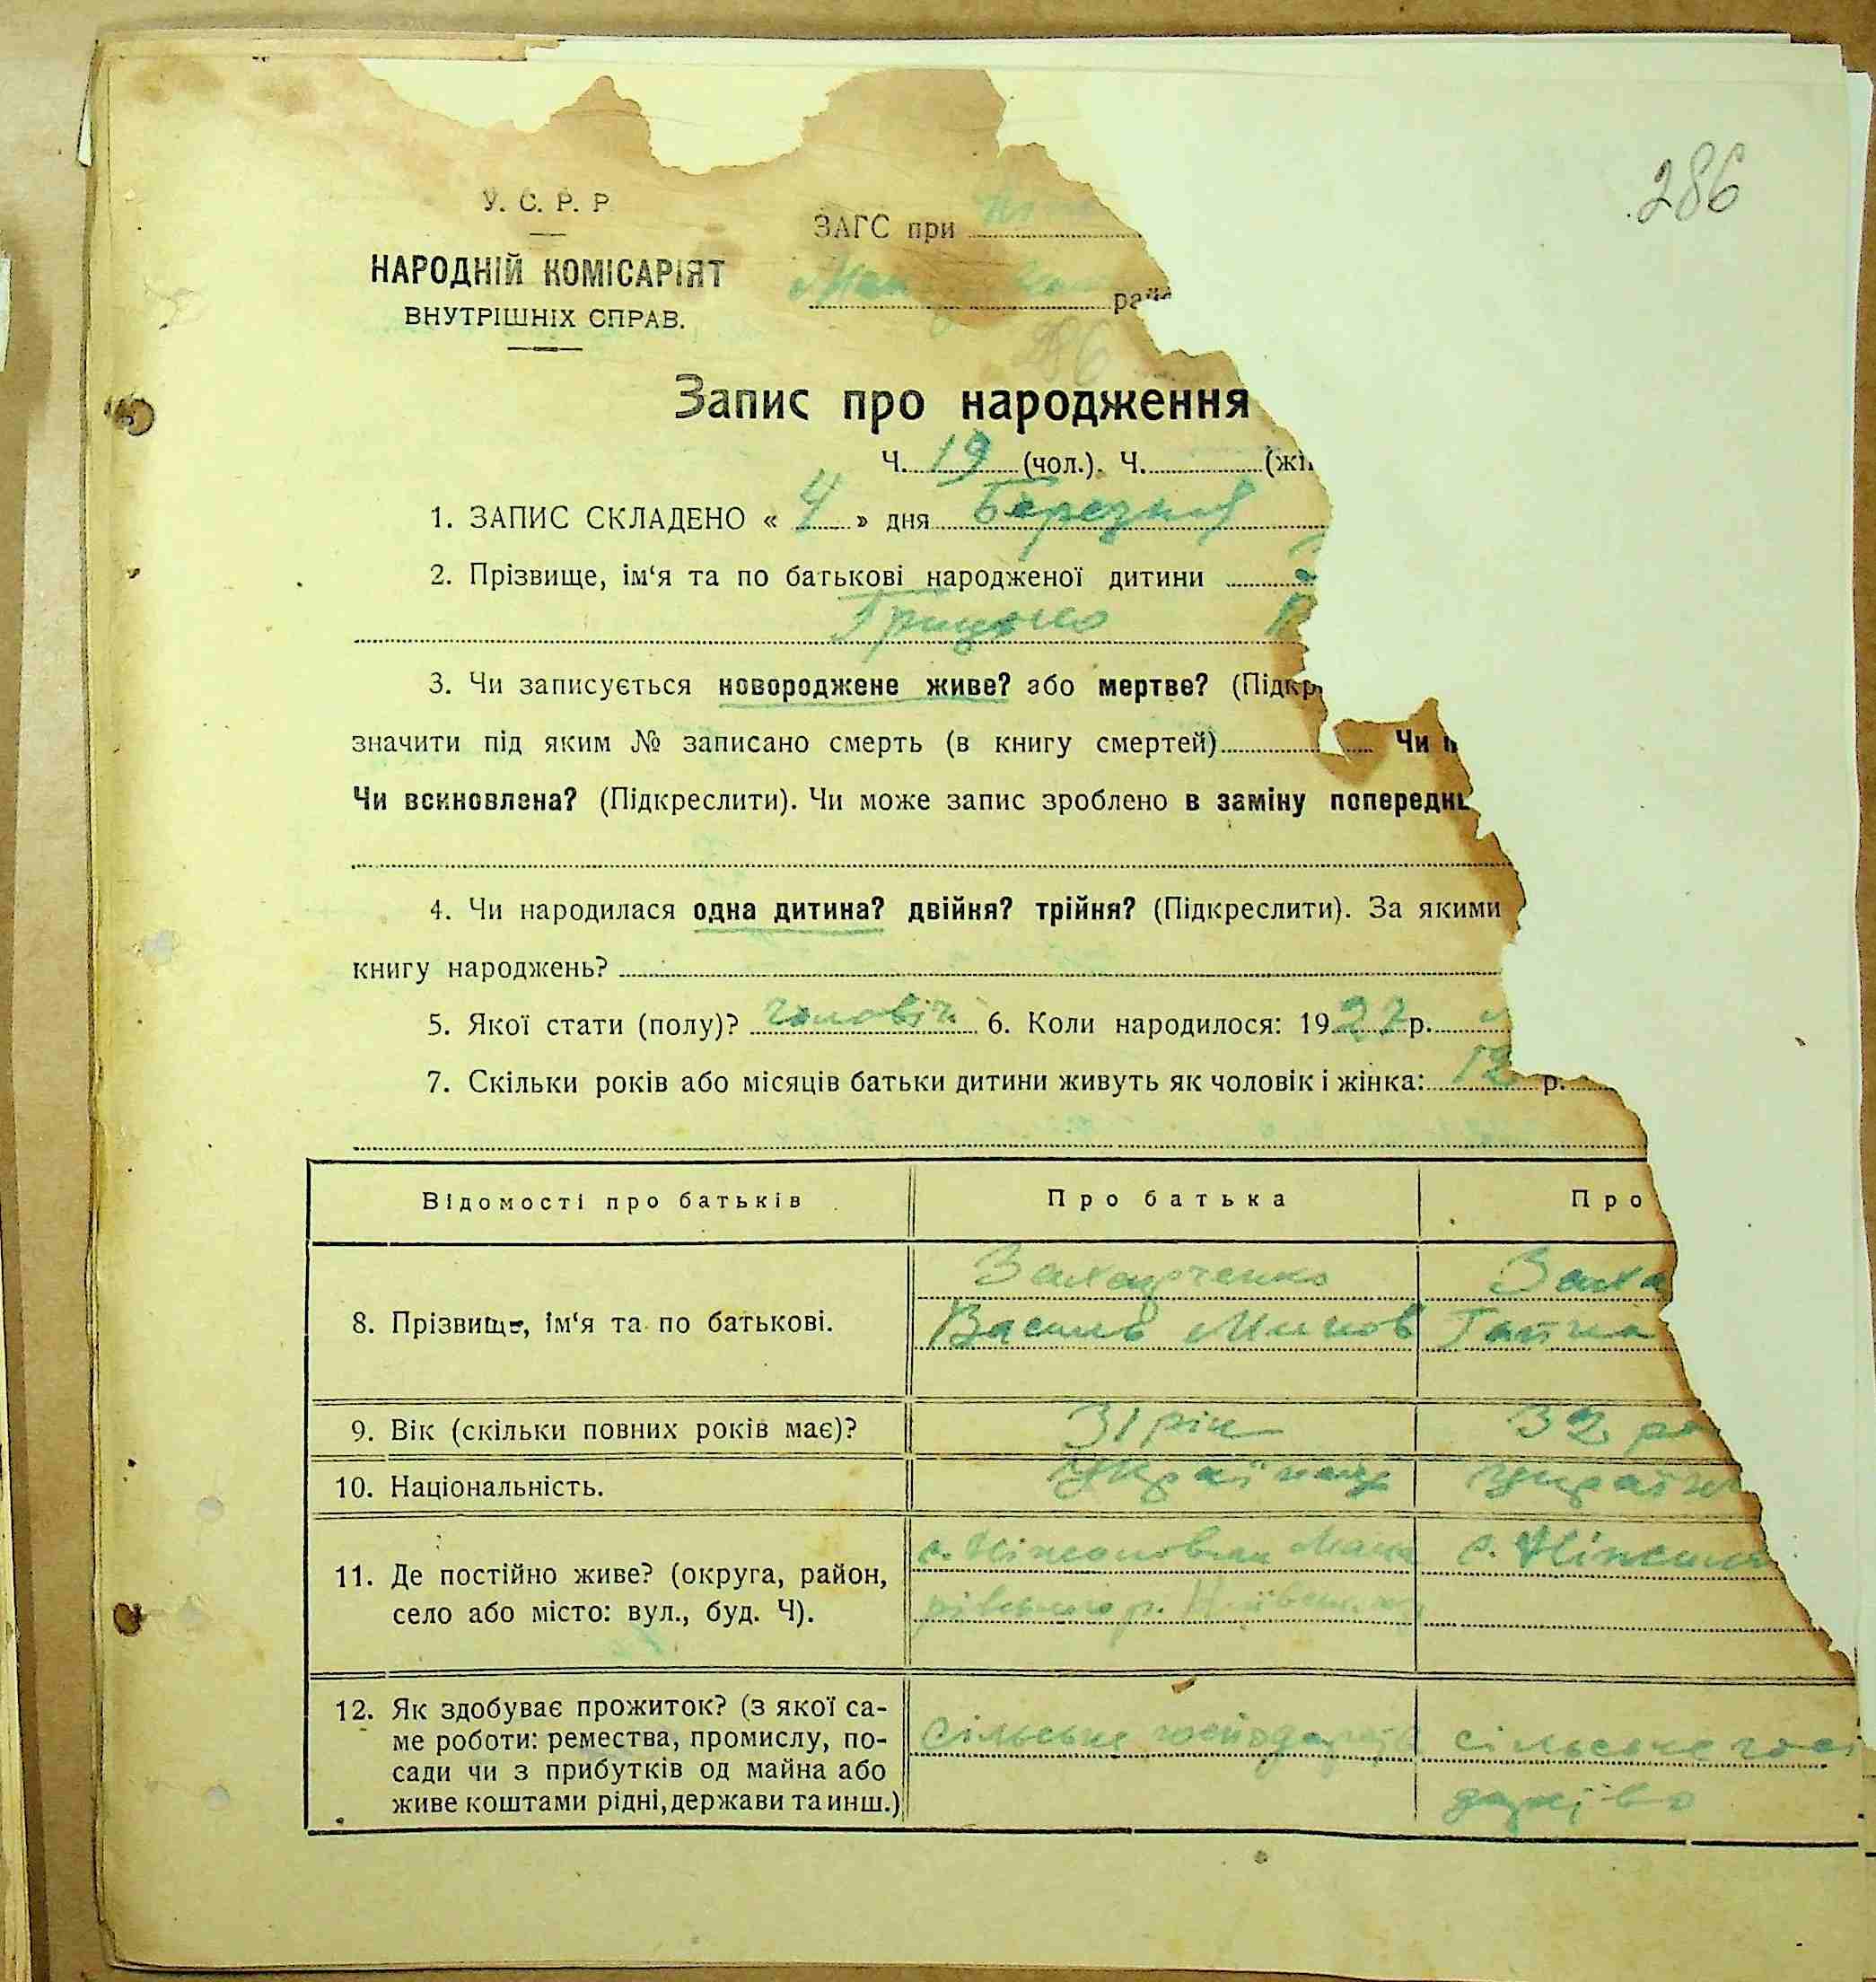 286
У. С. Р. Р
НАРОДНІЙ КОМІСАРІЯТ
ВНУТРІШНІХ СПРАВ.
ЗАГС при
рай
286
Запис про народження
Ч. 19 (чол.). Ч. (жін
1. ЗАПИС СКЛАДЕНО « 4 » дня Березня
2. Прізвище, ім‘я та по батькові народженої дитини
Грицько
3. Чи записується новороджене живе? або мертве? (Підкр
значити під яким № записано смерть (в книгу смертей) Чи
Чи всиновлена? (Підкреслити). Чи може запис зроблено в заміну попередн
4. Чи народилася одна дитина? двійня? трійня? (Підкреслити). За якими
книгу народжень?
5. Якої стати (полу)? чоловіч. 6. Коли народилося: 1927 р.
7. Скільки років або місяців батьки дитини живуть як чоловік і жінка: 12 р.
Відомості про батьків Про батька Про
8. Прізвище, ім‘я та по батькові.
Захарченко
Василь Минов
Заха
Ганна
9. Вік (скільки повних років має)? 31 рік 32 ро
10. Національність. Українець україн
11. Де постійно живе? (округа, район,
село або місто: вул., буд. Ч).
12. Як здобуває прожиток? (з якої са-
ме роботи: ремества, промислу, по-
сади чи з прибутків од майна або
живе коштами рідні, держави та инш.)
сільське господарств
сільське госп
дарство